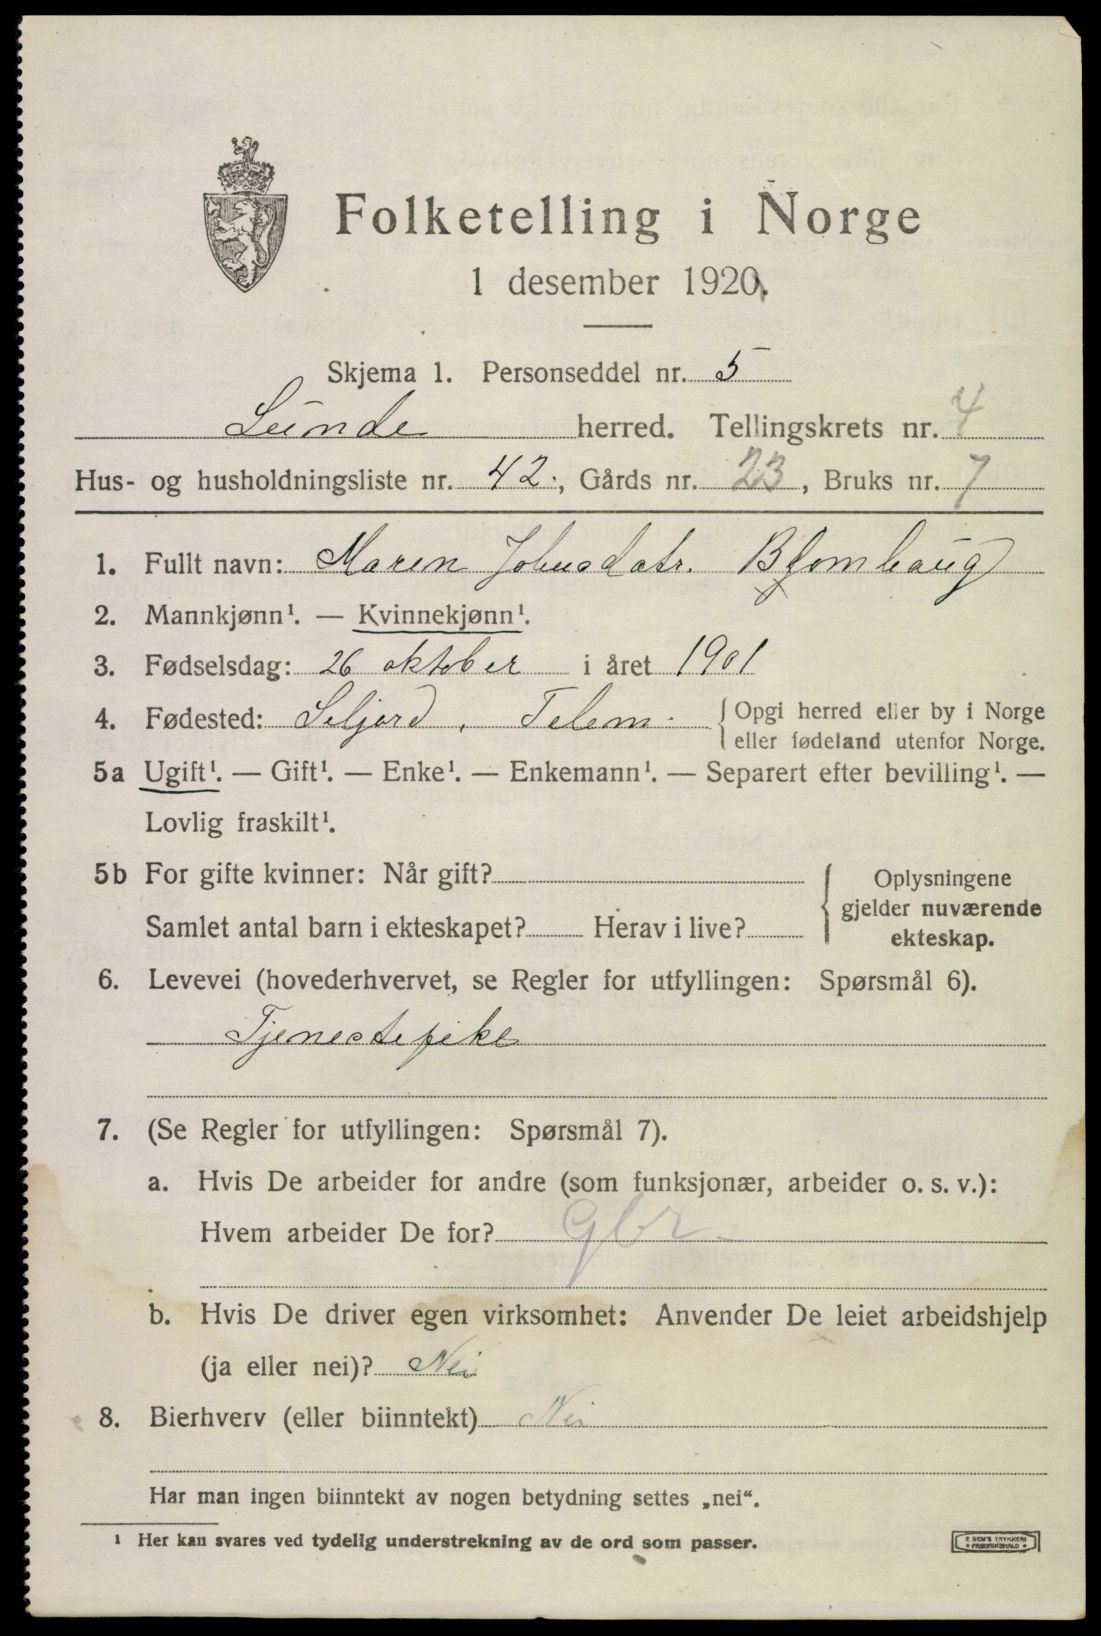 Folketelling i Norge
1 desember 1920.
Skjema 1. Personseddel nr. 5
Lunde herred. Tellingskrets nr. 4
Hus- og husholdningsliste nr. 42., Gårds nr. 23, Bruks nr. 7
1. Fullt navn: Maren Johusdatr. Blomhaug
2. Mannkjønn¹. — Kvinnekjønn¹.
3. Fødselsdag: 26 oktober i året 1901
4. Fødested: Seljord, Telem. { Opgi herred eller by i Norge
eller fødeland utenfor Norge.
5a Ugift¹. — Gift¹. — Enke¹. — Enkemann¹. — Separert efter bevilling¹. —
Lovlig fraskilt¹.
5b For gifte kvinner: Når gift?
Samlet antal barn i ekteskapet? Herav i live?
{ Oplysningene
gjelder nuværende
ekteskap.
6. Levevei (hovederhvervet, se Regler for utfyllingen: Spørsmål 6).
Tjenestepike
7. (Se Regler for utfyllingen: Spørsmål 7).
a. Hvis De arbeider for andre (som funksjonær, arbeider o. s. v.):
Hvem arbeider De for? Gbr
b. Hvis De driver egen virksomhet: Anvender De leiet arbeidshjelp
(ja eller nei)? Nei
8. Bierhverv (eller biinntekt) Nei
Har man ingen biinntekt av nogen betydning settes „nei“.
¹ Her kan svares ved tydelig understrekning av de ord som passer.